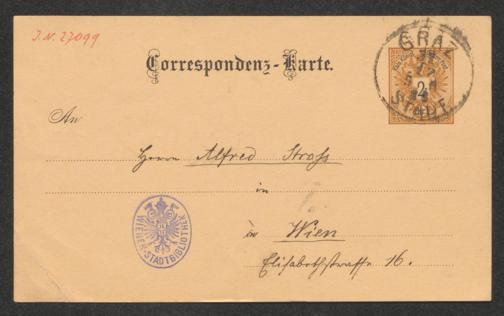 J.N. 27099
Correspondenz-Karte.
GRAZ
STADT
2
An
Herrn Alfred Stross
in
in Wien
Elisabethstrasse 16.
WIENER-STADTBIBLIOTHEK